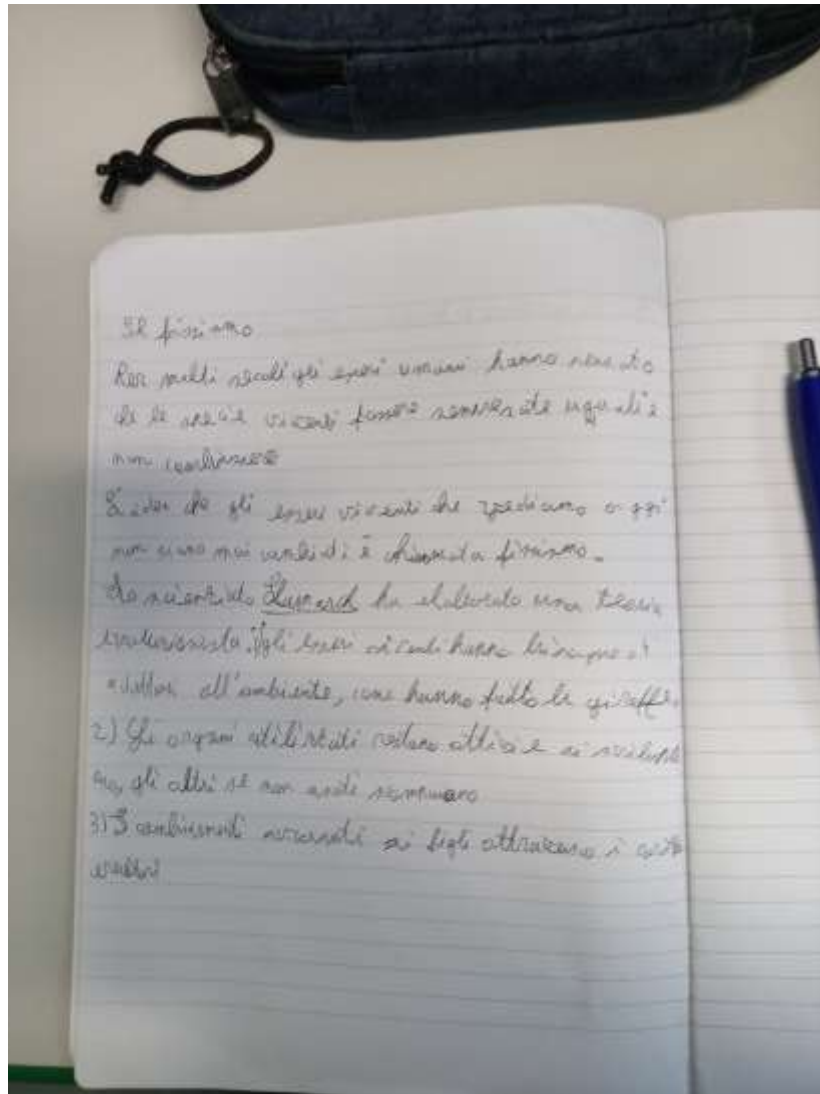 Il fissismo
Per molti secoli gli esseri umani hanno pensato
che le specie viventi fossero sempre state uguali e
non cambiassero
L'idea che gli esseri viventi che vediamo oggi
non siano mai cambiati è chiamata fissismo.
Lo scienziato ha elaborato una teoria
evoluzionista. gli esseri viventi hanno bisogno di
adattarsi all'ambiente, come hanno fatto le giraffe.
2) Gli organi utilizzati restano attivi e si svilupp
ano, gli altri se non usati scompaiono
3) I cambiamenti ai figli attraverso i